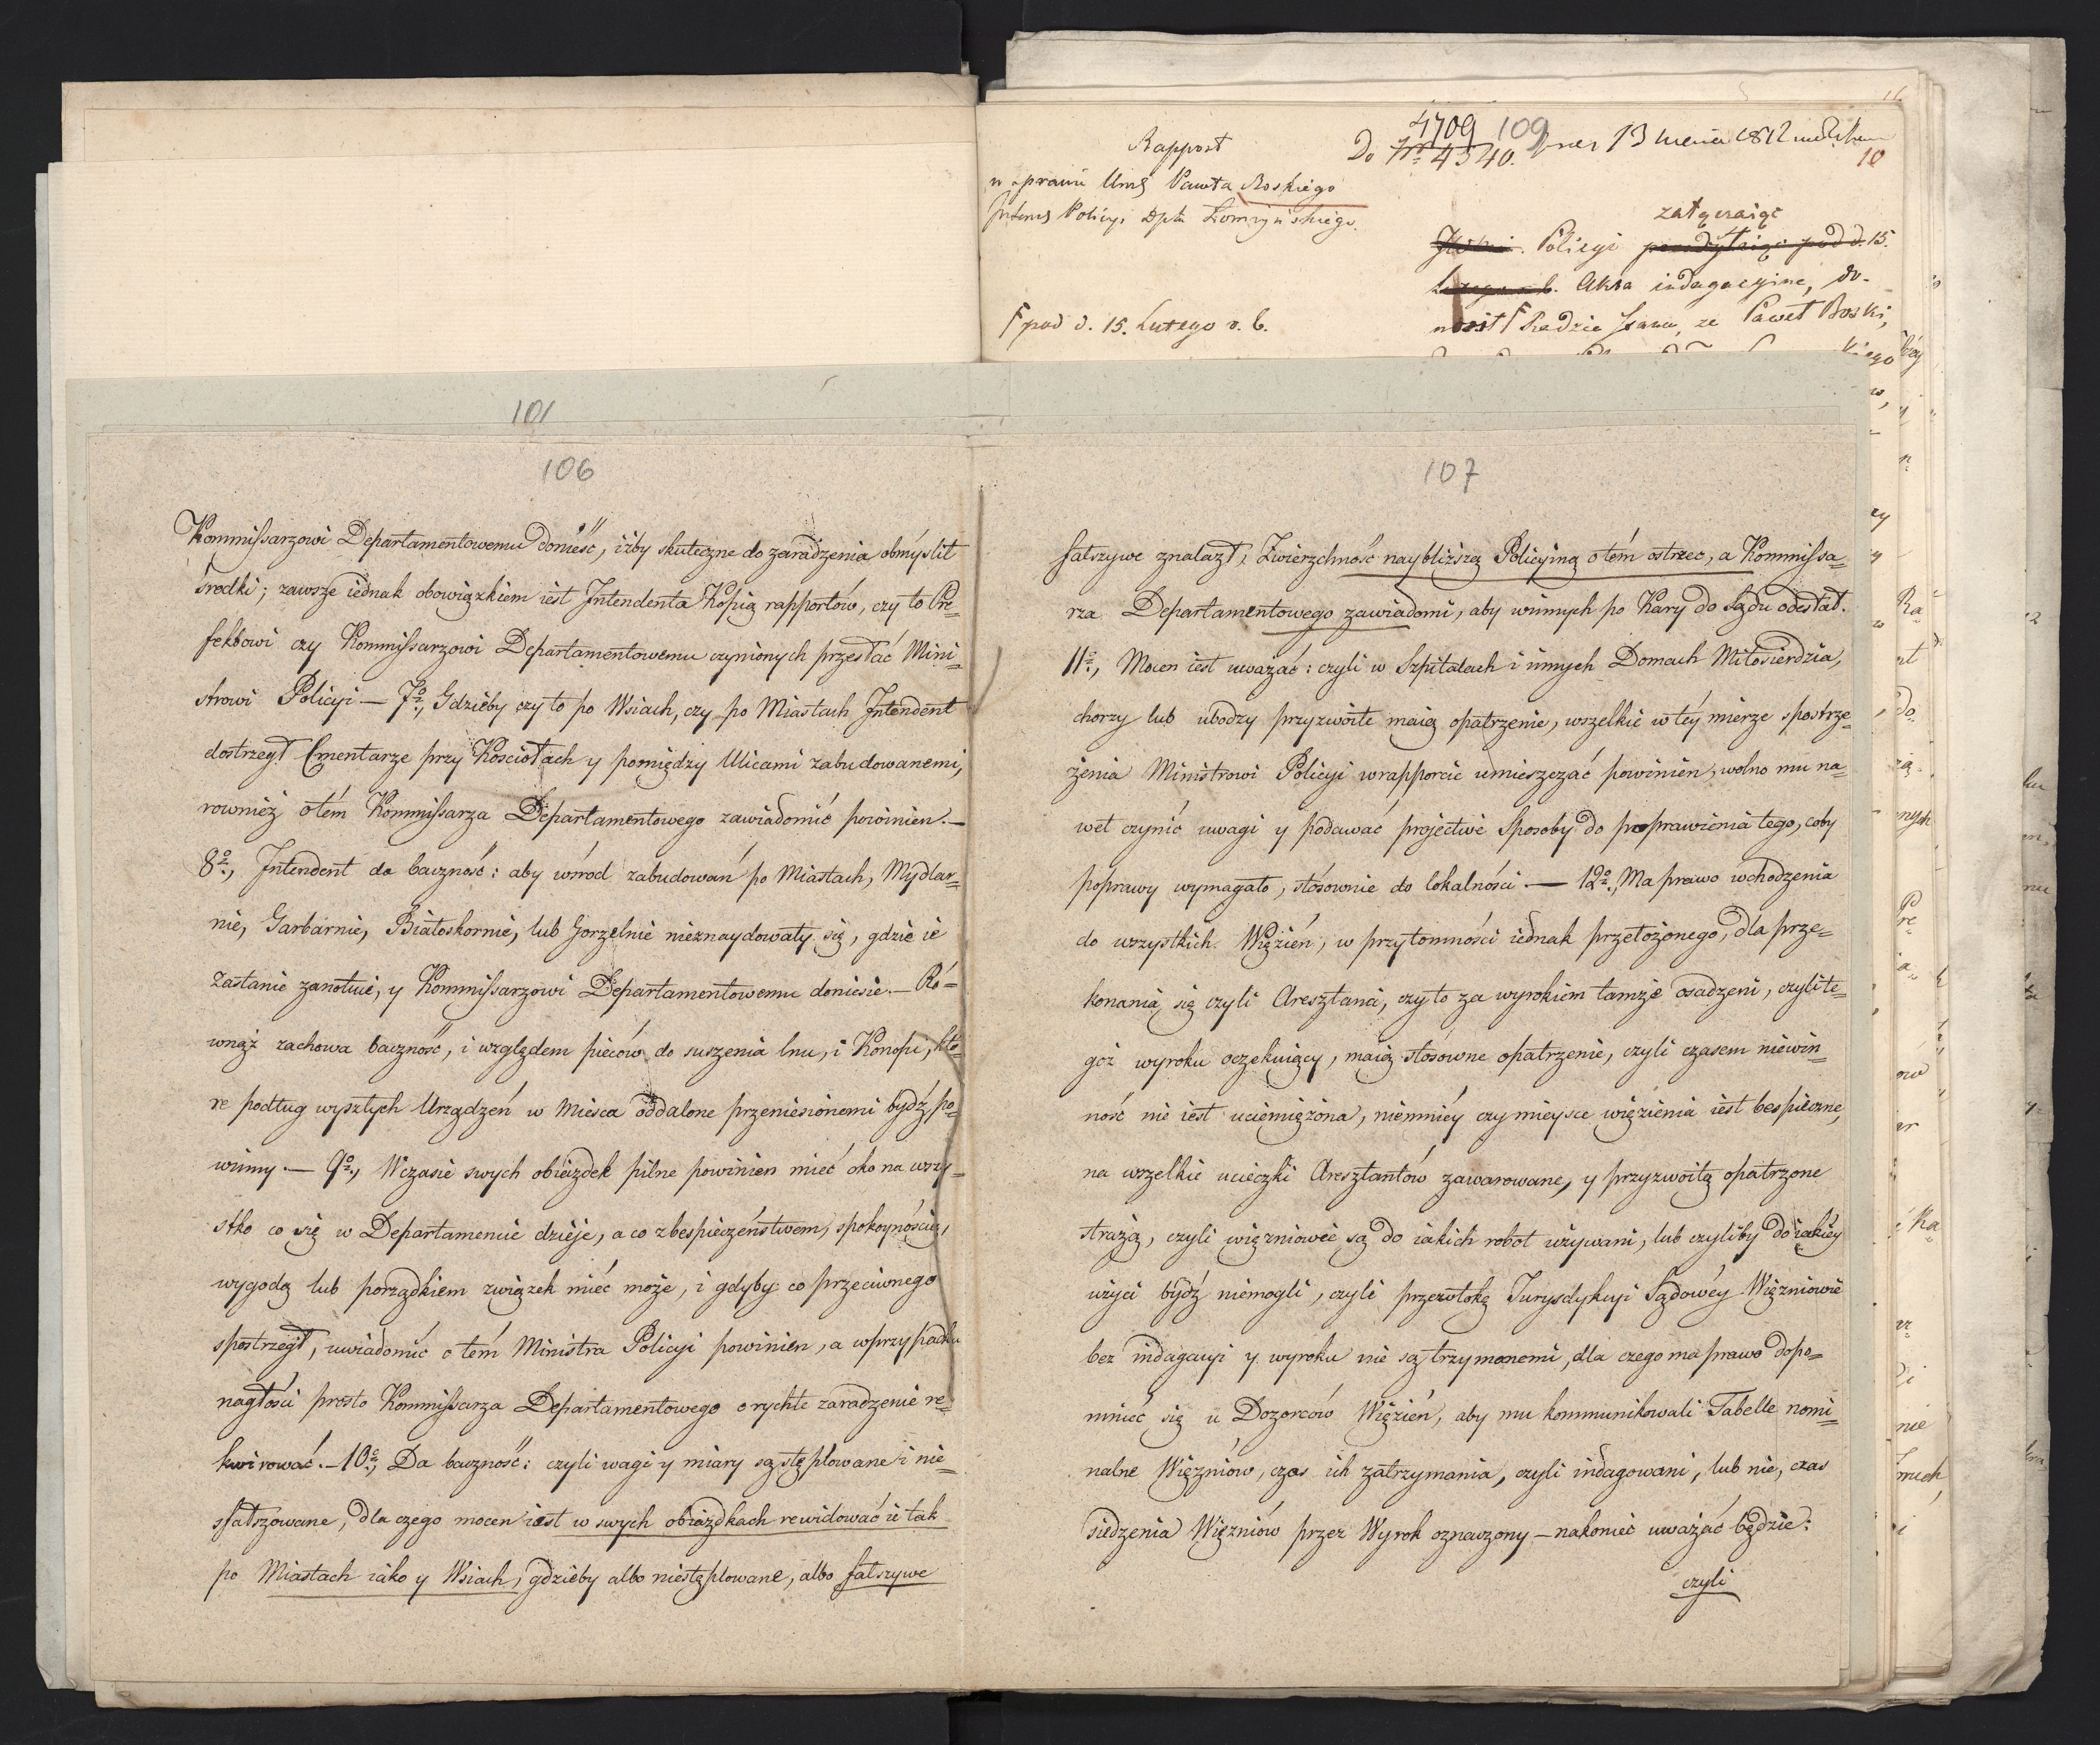 Rapport
w sprawie Urne Pawła Boskiego
Intens Policyi Dptu Łomżyńskiego.
F pod d. 15. Lutego r. b.
4709 109
Do Nro 4340.
13 1812
10
załączaiąc
Policyi pod d. 15.
Akta indagacyine, do-
nosił F Radzie Stanu, ze Paweł Boski,
101
106
Kommissarzowi Departamentowemu donieść, iżby skuteczne do zaradzenia obmyslił
srodki; zawsze iednak obowiązkiem iest Intendenta Kopią rapportów, czy to Pre=
fektowi czy Kommissarzowi Departamentowemu czynionych przesłać Mini=
strowi Policyi — 7o., Gdzieby czy to po Wsiach, czy po Miastach Intendent
dostrzegł Cmentarze przy Kosciołach y pomiędzy Ulicami zabudowanemi,
rownież o tém Kommissarza Departamentowego zawiadomić powinien. —
8o., Intendent da baczność: aby wśrod zabudowań po Miastach, Mydlar=
nie, Garbarnie, Białoskornie, lub Gorzelnie nieznaydowały się, gdzie ie
zastanie zanotuie, y Kommissarzowi Departamentowemu doniesie. — Ró=
wnąż zachowa baczność, i względem pieców do suszenia lnu, i Konopi, któ=
re podług wyszłych Urządzeń w Miesca oddalone przeniesionemi bydź po=
winny. — 9o., Wczasie swych obiazdek pilne powinien mieć oko na wszy=
stko co się w Departamencie dzieje, a co z bespieczeństwem, spokoynością,
wygodą lub porządkiem związek mieć może, i gdyby co przeciwnego
spostrzegł, uwiadomić o tém Ministra Policyi powinien, a wprzypadku
nagłości prosto Kommissarza Departamentowego o rychłe zaradzenie re=
kwirować. — 10o., Da baczność: czyli wagi y miary są stęplowane i nie=
sfałszowane, dla czego mocen iest w swych obiazdkach rewidować ie tak
po Miastach iako y Wsiach, gdzieby albo niestęplowane, albo fałszywe
107
fałszywe znalazł, Zwierzchność naybliższą Policyiną o tém ostrzec, a Kommissa=
rza Departamentowego zawiadomi, aby winnych po Kary do Sądu odesłał.
11o., Mocen iest uważać: czyli w Szpitalach i innych Domach Miłosierdzia,
chorzy lub ubodzy przyzwoite maią opatrzenie, wszelkie w téy mierze spostrze=
żenia Ministrowi Policyi w rapporcie umieszczać powinien, wolno mu na=
wet czynić uwagi y podawać projective Sposoby do poprawienia tego, coby
poprawy wymagało, stósownie do lokalności. — 12o., Ma prawo wchodzenia
do wszystkich Więzień, w przytomności iednak przełożonego, dla prze=
konania się czyli Aresztanci, czy to za wyrokiem tamże osadzeni, czyli te=
goż wyroku oczekuiący, maią stósowne opatrzenie, czyli czasem niewin=
ność nie iest uciemiężona, niemniéy czy mieysce więzienia iest bespieczne,
na wszelkie ucieczki Aresztantów zawarowane, y przyzwoitą opatrzone
strażą, czyli więzniowie są do iakich robot używani, lub czyliby do iakiéy
użyci bydź niemogli, czyli przezwłokę Jurysdykcyi Sądowéy Więzniowie
bez indagacyi y wyroku nie są trzymanemi, dla czego ma prawo dopo=
mnieć się u Dozorców Więzień, aby mu kommunikowali Tabelle nomi=
nalne Więzniów, czas ich zatrzymania, czyli indagowani, lub nie, czas
siedzenia Więzniów przez Wyrok oznaczony — nakoniec uważać będzie:
czyli